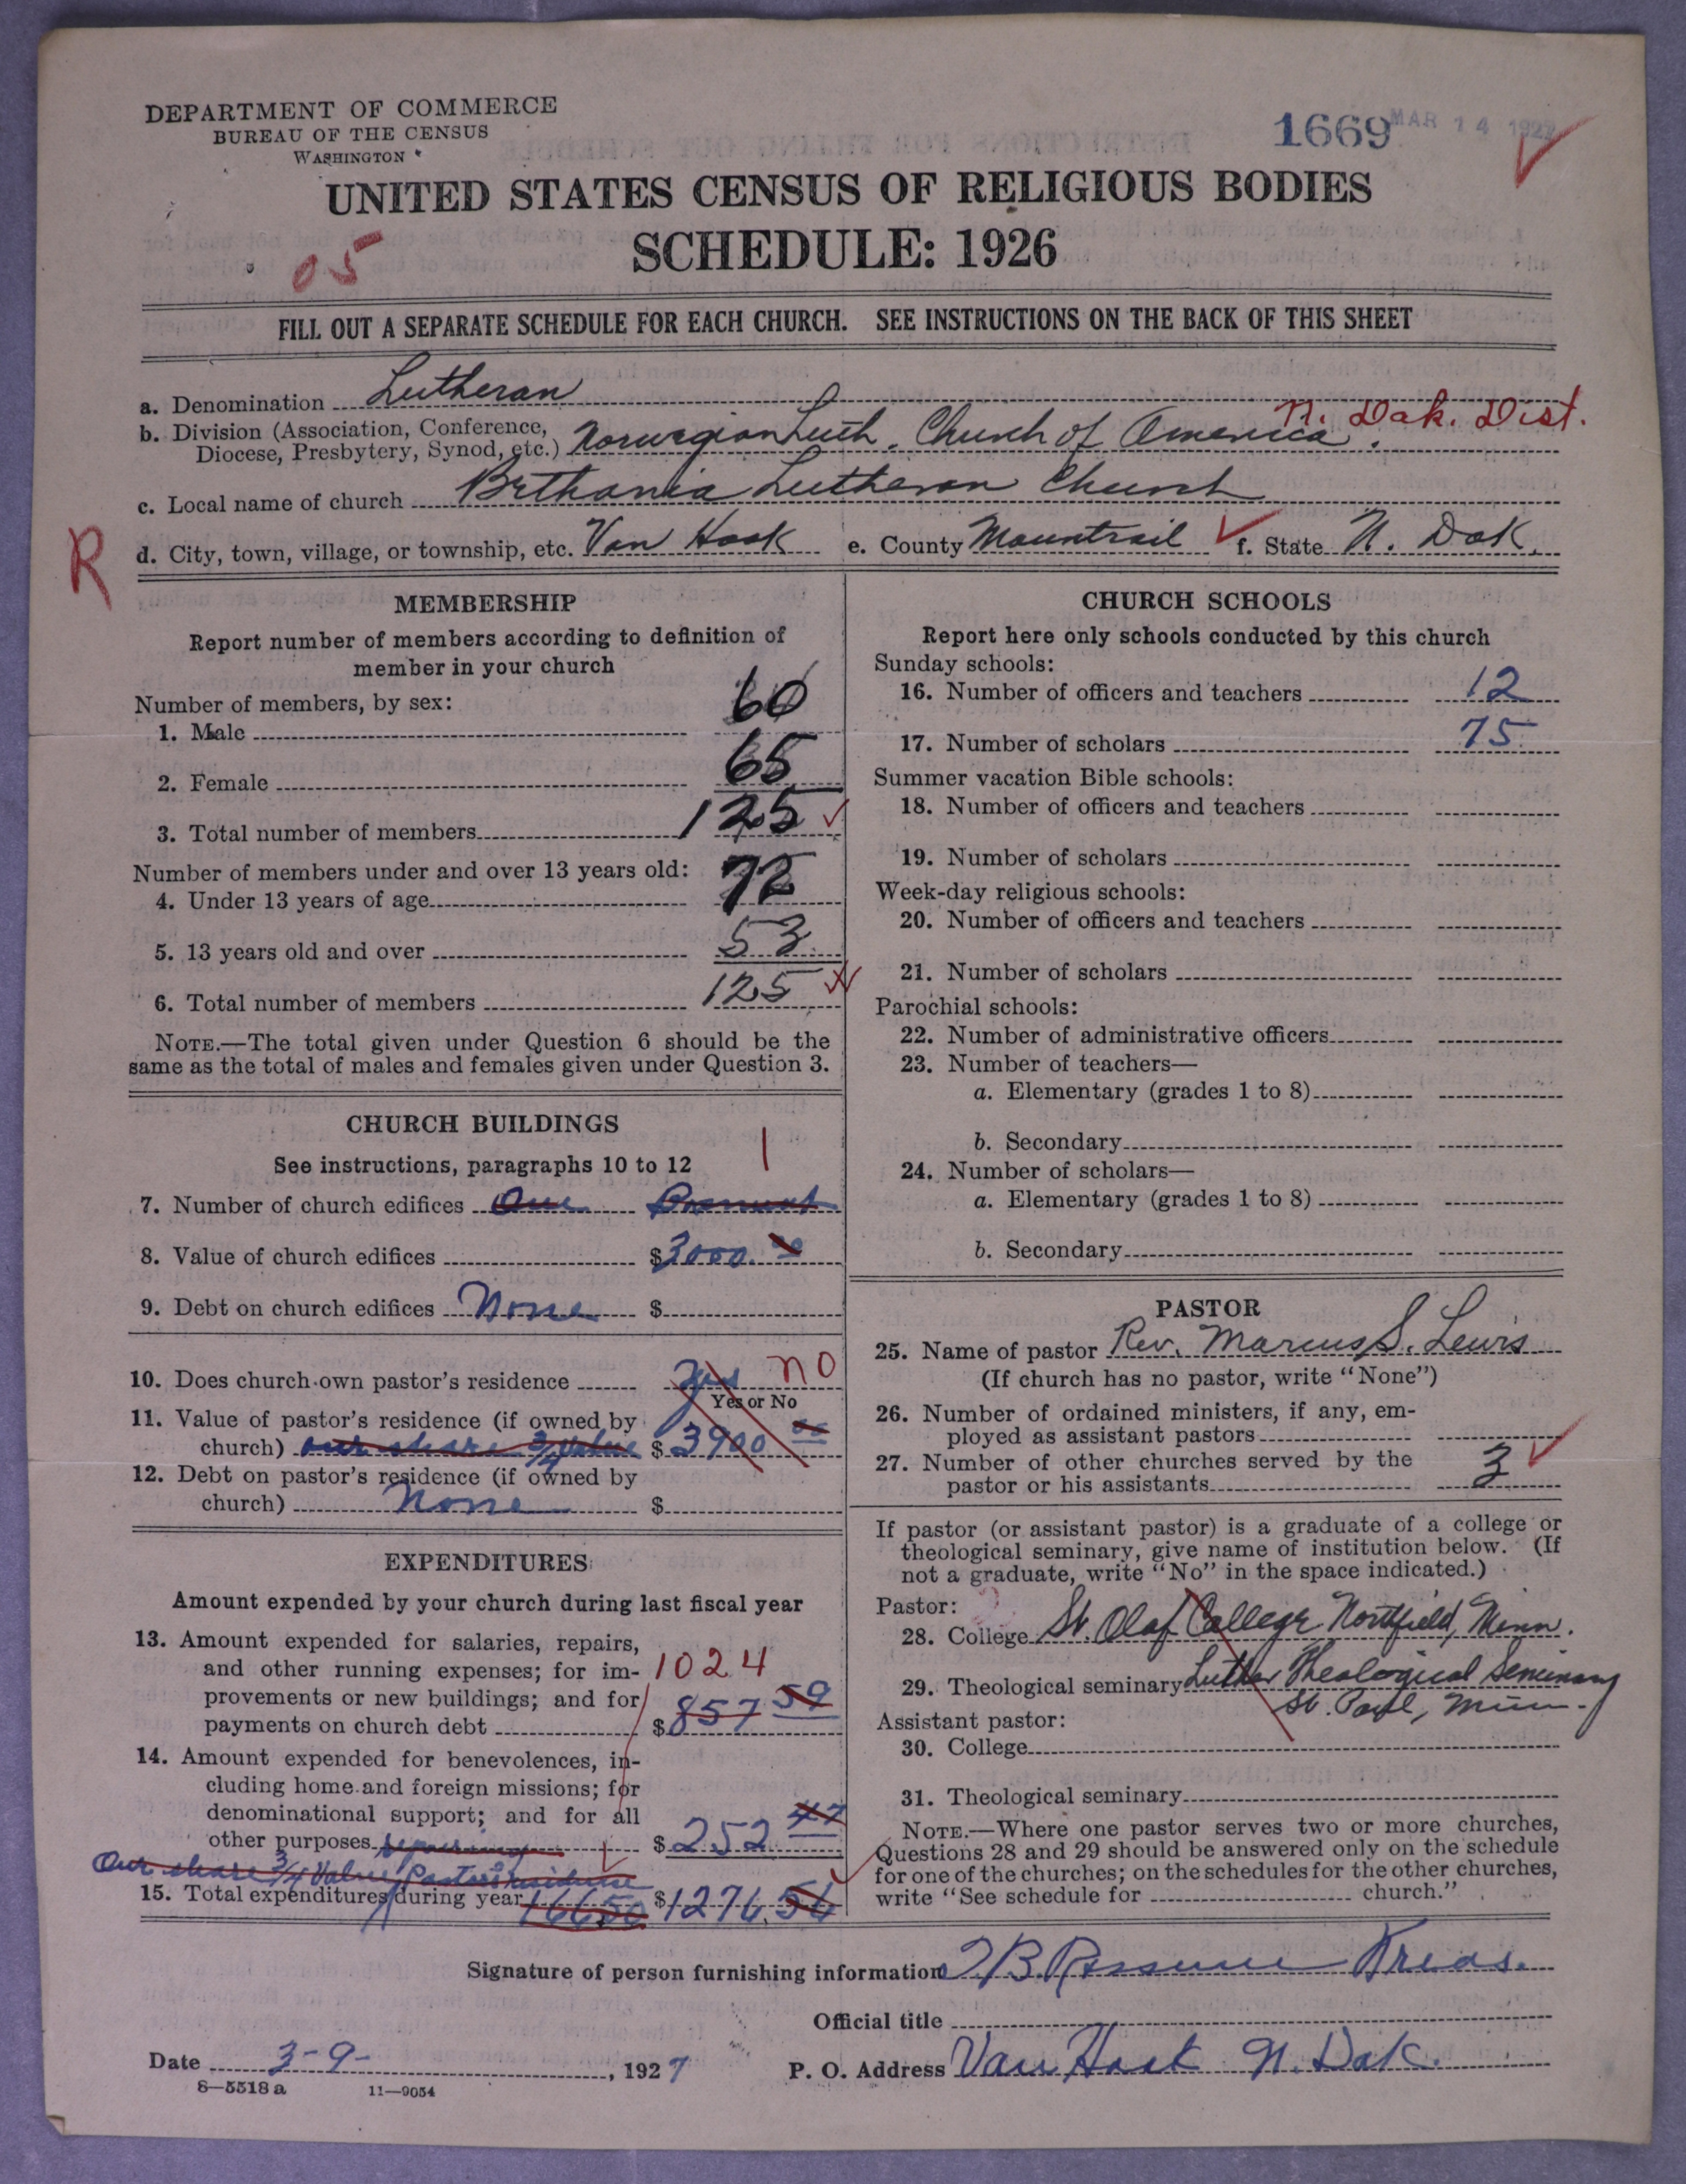 DEPARTMENT OF COMMERCE
BUREAU OF THE CENSUS
WASHINGTON
1669 MAR 14 1927
UNITED STATES CENSUS OF RELIGIOUS BODIES
SCHEDULE: 1926
05
FILL OUT A SEPARATE SCHEDULE FOR EACH CHURCH. SEE INSTRUCTIONS ON THE BACK OF THIS SHEET
a. Denomination Lutheran
N. Dak. Dist.
b. Division (Association, Conference, Diocese, Presbytery, Synod, etc.) Norwegian Luth. Church of America.
c. Local name of church Bethania Lutheran Church
R
d. City, town, village, or township, etc. Van Hook e. County Mountrail f. State N. Dak.
MEMBERSHIP
Report number of members according to definition of
member in your church
Number of members, by sex:
1. Male 60
2. Female 65
3. Total number of members 125
Number of members under and over 13 years old:
4. Under 13 years of age 72
5. 13 years old and over 53
6. Total number of members 125
NOTE.—The total given under Question 6 should be the
same as the total of males and females given under Question 3.
CHURCH BUILDINGS
See instructions, paragraphs 10 to 12 1
7. Number of church edifices One
8. Value of church edifices $3000.00
9. Debt on church edifices None $
10. Does church own pastor's residence Yes NO
Yes or No
11. Value of pastor's residence (if owned by
church) our share 3/4 Value $3900 00
12. Debt on pastor's residence (if owned by
church) None $
EXPENDITURES
Amount expended by your church during last fiscal year
13. Amount expended for salaries, repairs,
and other running expenses; for im- 1024
provements or new buildings; and for
payments on church debt $857 59
14. Amount expended for benevolences, in-
cluding home and foreign missions; for
denominational support; and for all
other purposes $252 47
Our share 3/4 Value Pastors residence
15. Total expenditures during year 166 50 $1276.56
CHURCH SCHOOLS
Report here only schools conducted by this church
Sunday schools:
16. Number of officers and teachers 12
17. Number of scholars 75
Summer vacation Bible schools:
18. Number of officers and teachers
19. Number of scholars
Week-day religious schools:
20. Number of officers and teachers
21. Number of scholars
Parochial schools:
22. Number of administrative officers
23. Number of teachers—
a. Elementary (grades 1 to 8)
b. Secondary
24. Number of scholars—
a. Elementary (grades 1 to 8)
b. Secondary
PASTOR
25. Name of pastor Rev. Marcus S. Lewis
(If church has no pastor, write "None")
26. Number of ordained ministers, if any, em-
ployed as assistant pastors
27. Number of other churches served by the
pastor or his assistants 3
If pastor (or assistant pastor) is a graduate of a college or
theological seminary, give name of institution below. (If
not a graduate, write "No" in the space indicated.)
Pastor:
28. College St. Olaf College Northfield, Minn.
29. Theological seminary Luther Theological Seminary
St. Paul, Minn.
Assistant pastor:
30. College
31. Theological seminary
NOTE.—Where one pastor serves two or more churches,
Questions 28 and 29 should be answered only on the schedule
for one of the churches; on the schedules for the other churches,
write "See schedule for church."
Signature of person furnishing information
Official title
Date 3-9- , 1927 P. O. Address Van Hook N. Dak.
8—5518 a 11—9054